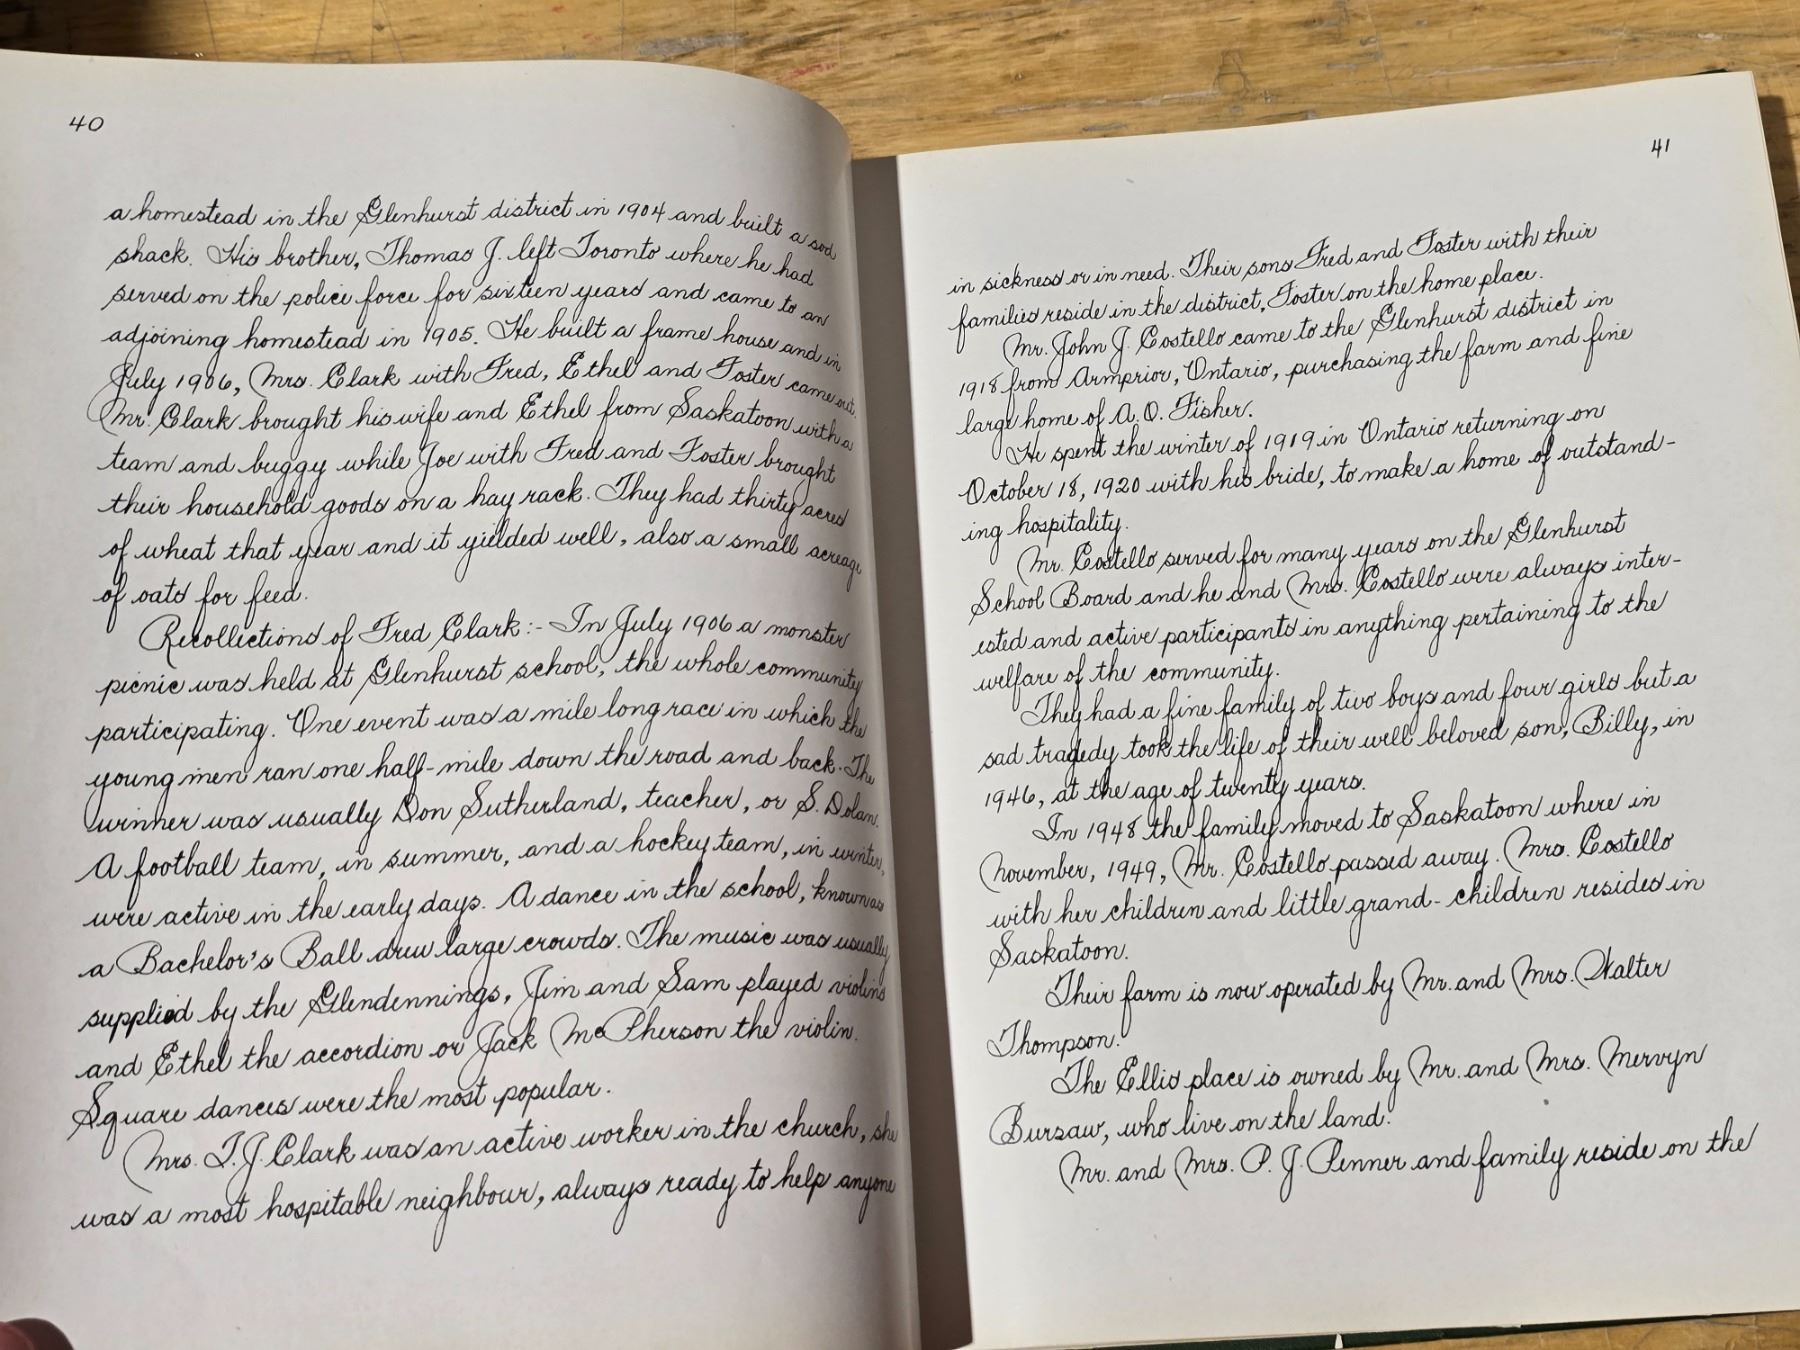 40
a homestead in the Glenhurst district in 1904 and built a sod
shack. His brother, Thomas J. left Toronto where he had
served on the police force for sixteen years and came to an
adjoining homestead in 1905. He built a frame house and in
July 1906, Mrs. Clark with Fred, Ethel and Foster came out.
Mr. Clark brought his wife and Ethel from Saskatoon with a
team and buggy while Joe with Fred and Foster brought
their household goods on a hay rack. They had thirty acres
of wheat that year and it yielded well, also a small acreage
of oats for feed.
Recollections of Fred Clark:- In July 1906 a monster
picnic was held at Glenhurst school, the whole community
participating. One event was a mile long race in which the
young men ran one half-mile down the road and back. The
winner was usually Don Sutherland, teacher, or S. Dolan.
A football team, in summer, and a hockey team, in winter,
were active in the early days. A dance in the school, known as
a Bachelor's Ball drew large crowds. The music was usually
supplied by the Glendennings, Jim and Sam played violins
and Ethel the accordion or Jack McPherson the violin.
Square dances were the most popular.
Mrs. T. J. Clark was an active worker in the church, she
was a most hospitable neighbour, always ready to help anyone
41
in sickness or in need. Their sons Fred and Foster with their
families reside in the district, Foster on the home place.
Mr. John J. Costello came to the Glenhurst district in
1918 from Armprior, Ontario, purchasing the farm and fine
large home of A. O. Fisher.
He spent the winter of 1919 in Ontario returning on
October 18, 1920 with his bride, to make a home of outstand-
ing hospitality.
Mr. Costello served for many years on the Glenhurst
School Board and he and Mrs. Costello were always inter-
ested and active participants in anything pertaining to the
welfare of the community.
They had a fine family of two boys and four girls but a
sad tragedy took the life of their well beloved son, Billy, in
1946, at the age of twenty years.
In 1948 the family moved to Saskatoon where in
November, 1949, Mr. Costello passed away. Mrs. Costello
with her children and little grand-children resides in
Saskatoon.
Their farm is now operated by Mr. and Mrs. Walter
Thompson.
The Ellis place is owned by Mr. and Mrs. Mervyn
Bursaw, who live on the land.
Mr. and Mrs. P. J. Penner and family reside on the